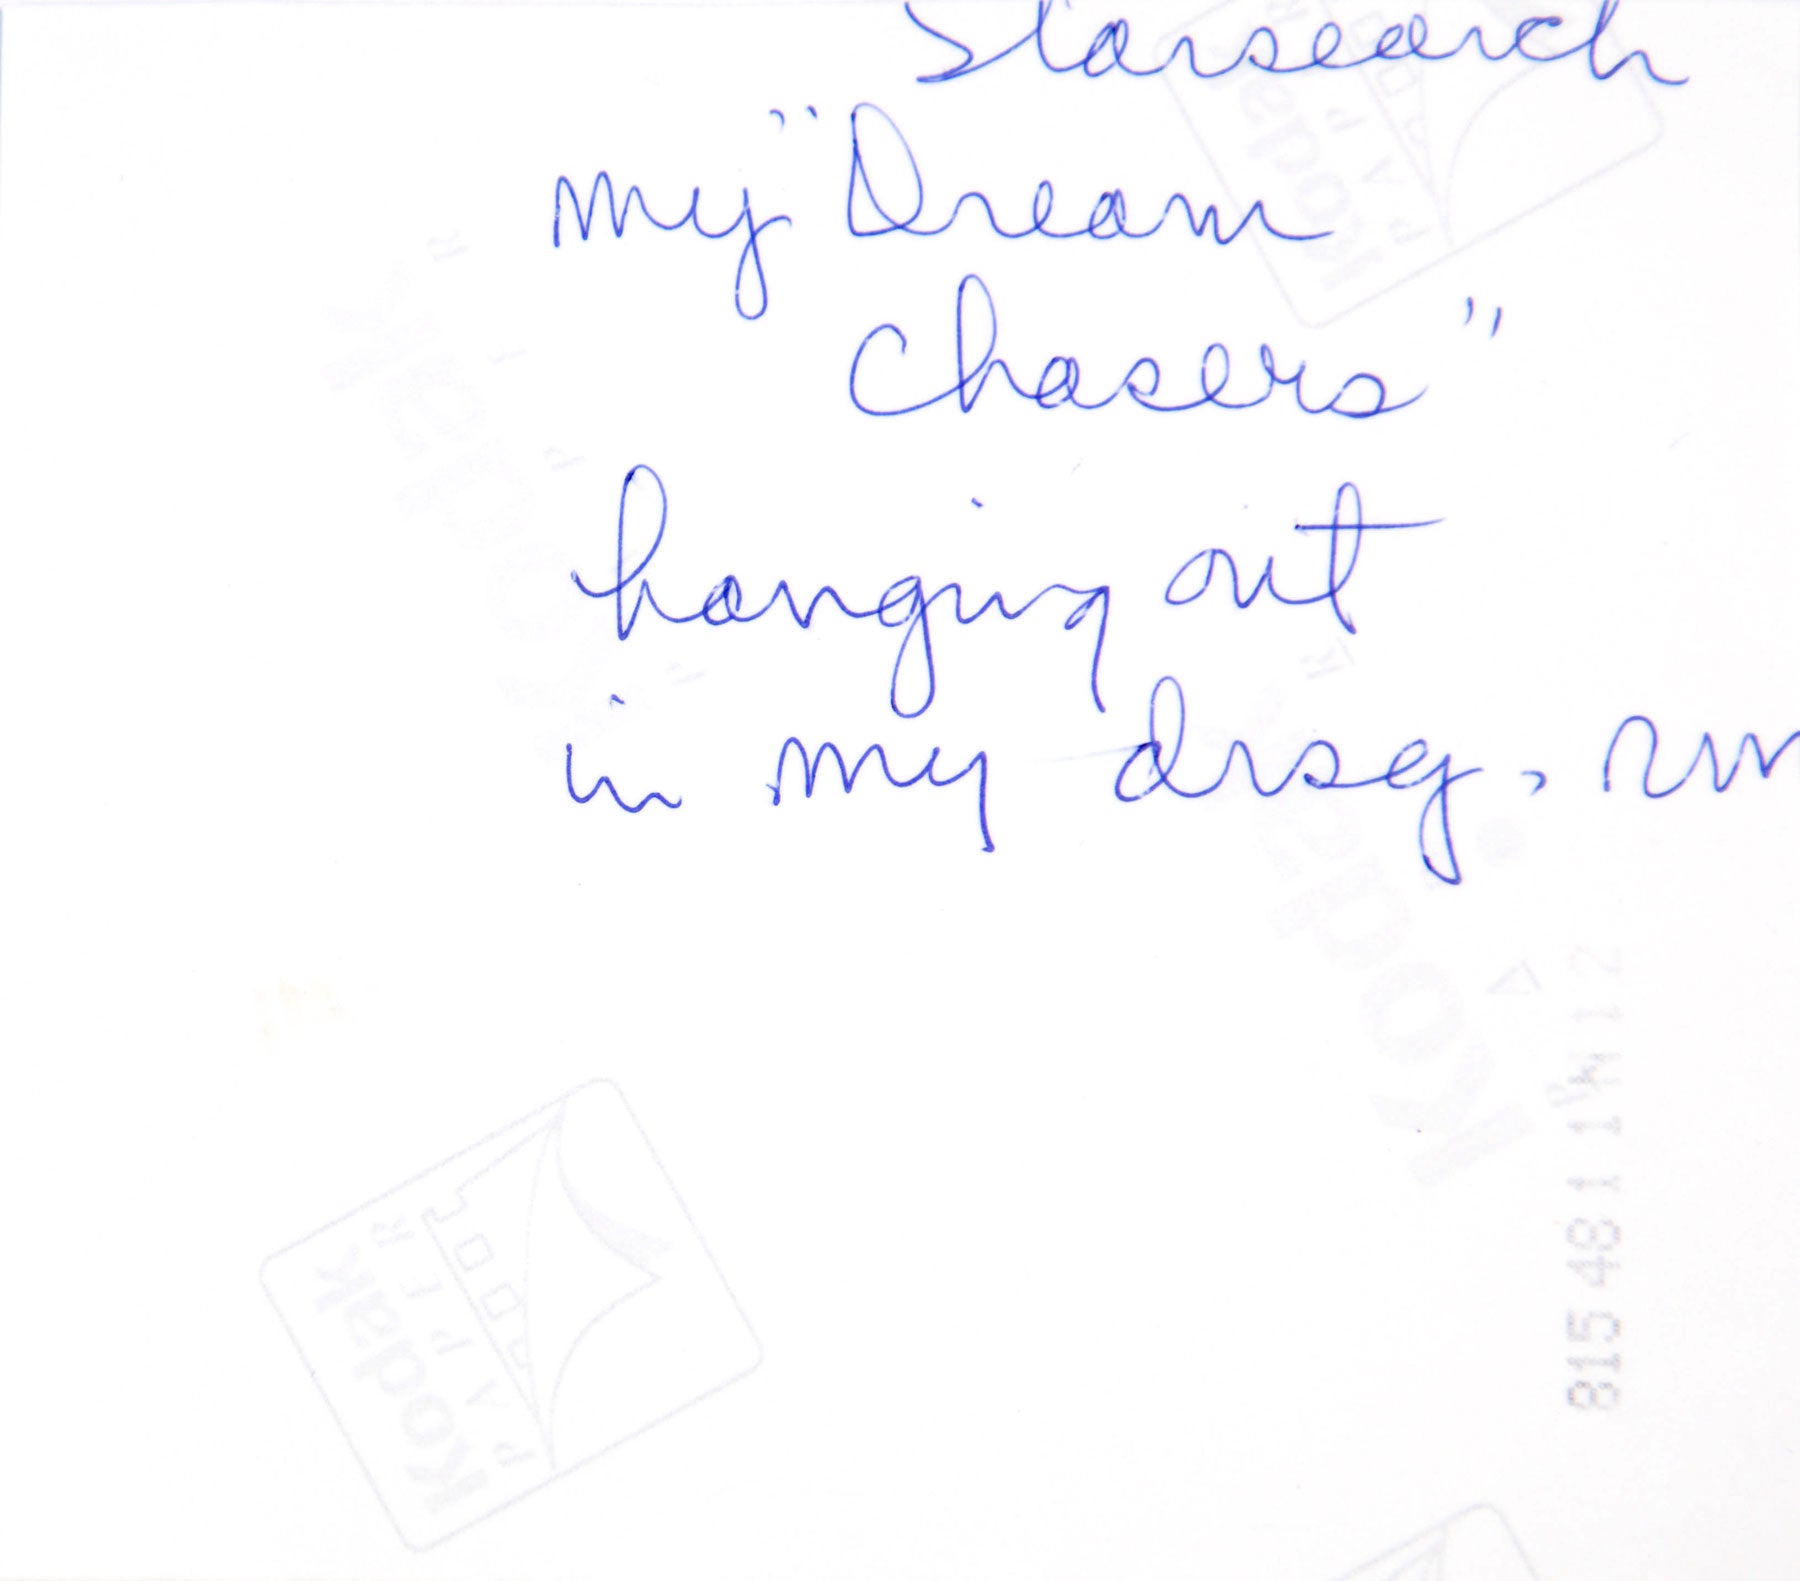 Starsearch
my "Dream
Chasers"
hanging out
in my drsg. rm
Kodak
PAPER
Kodak
PAPER
Kodak
Kodak
815 48 1 1